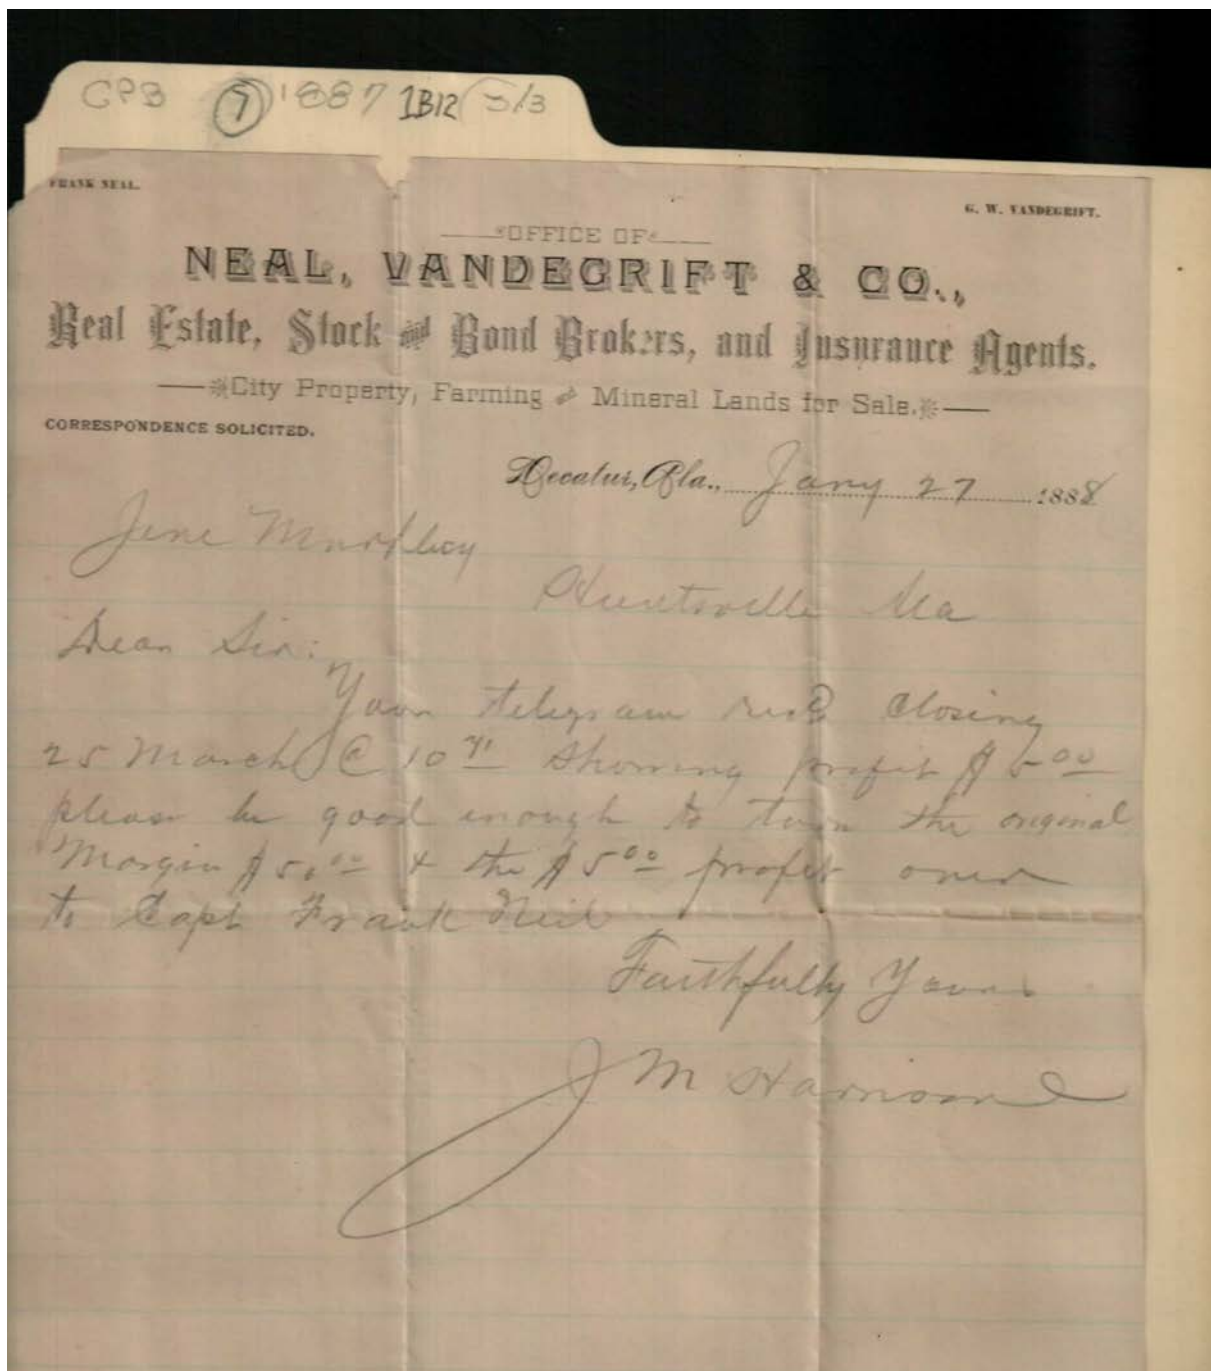 CPB 7 1887 1B12 5/3
FRANK NEAL.
G. W. VANDEGRIFT.
OFFICE OF
NEAL, VANDEGRIFT & CO.,
Real Estate, Stock and Bond Brokers, and Insurance Agents.
City Property, Farming and Mineral Lands for Sale.
CORRESPONDENCE SOLICITED.
Decatur, Ala., Jany 27 1888
Huntsville Ala
Dear Sir:
Your telegram recd closing
25 March @ 10 showing profit $5.00
please be good enough to turn the original
Margin $50.00 & the $5.00 profit over
to Capt Frank Neil
Faithfully Yours
J M Harrison